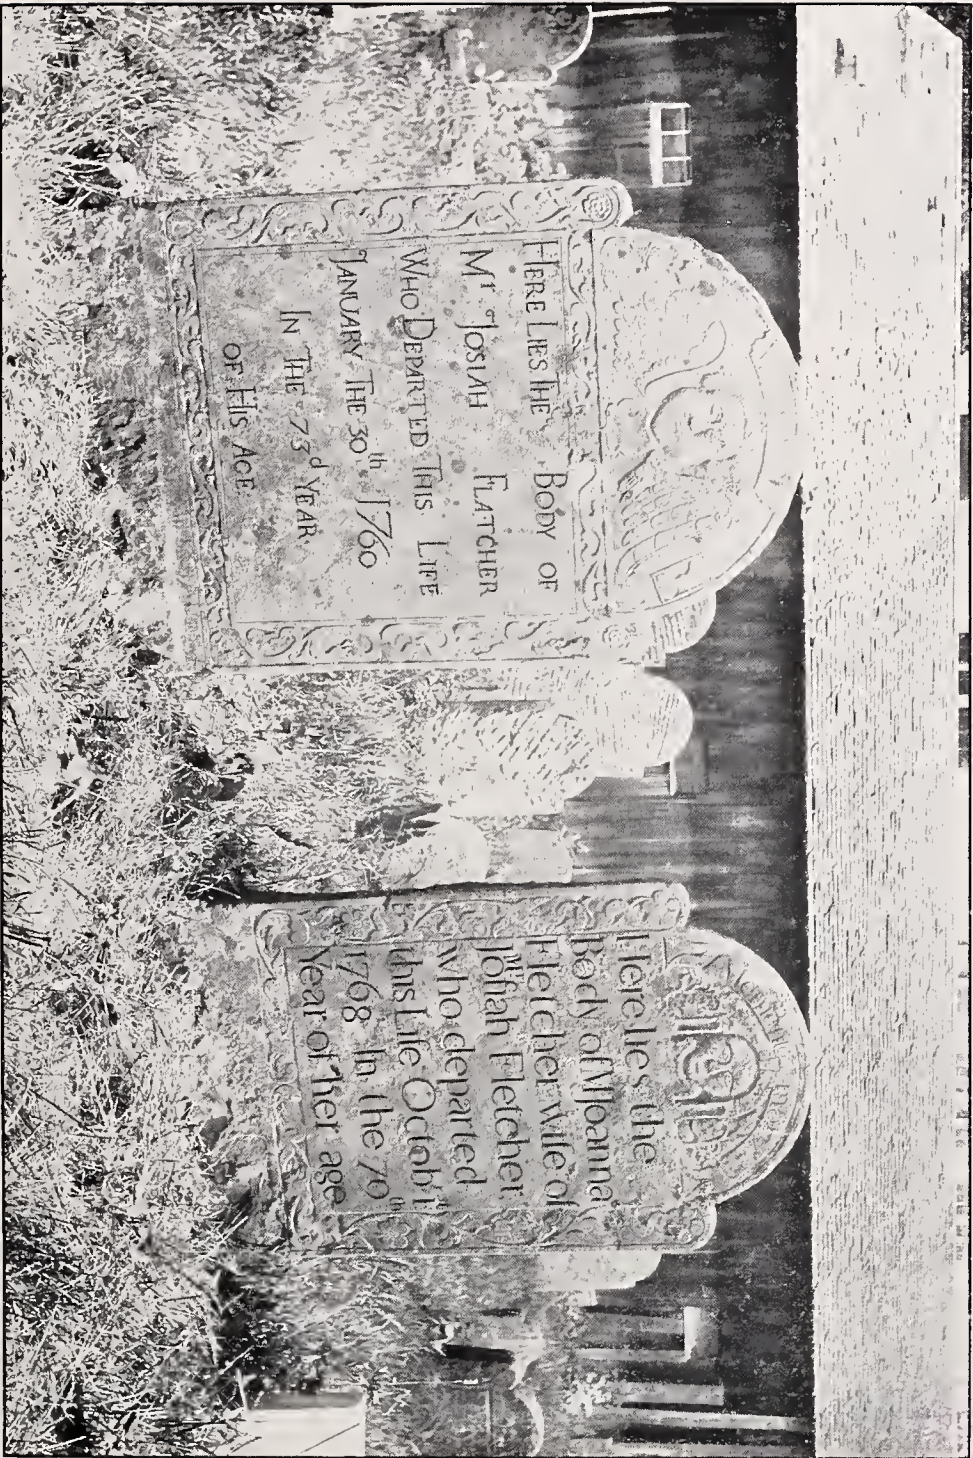 HERE LIES THE BODY OF
Mr JOSIAH FLATCHER
WHO DEPARTED THIS LIFE
JANUARY THE 30th 1760
IN THE 73d YEAR
OF HIS AGE
Memento mori
Here lies the
Body of M Joanna
Fletcher wife of
Mr Joſiah Fletcher
who departed
this Life Octobr 1st
1768 In the 70th
Year of her age